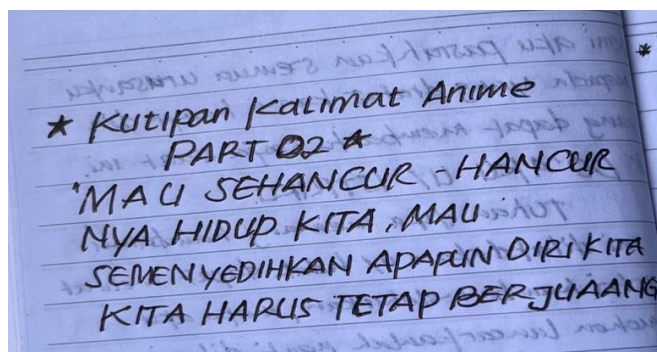 * Kutipan Kalimat Anime
PART 02 *
"MAU SEHANCUR - HANCUR
NYA HIDUP KITA, MAU
SEMENYEDIHKAN APAPUN DIRI KITA
KITA HARUS TETAP BERJUAANG
*